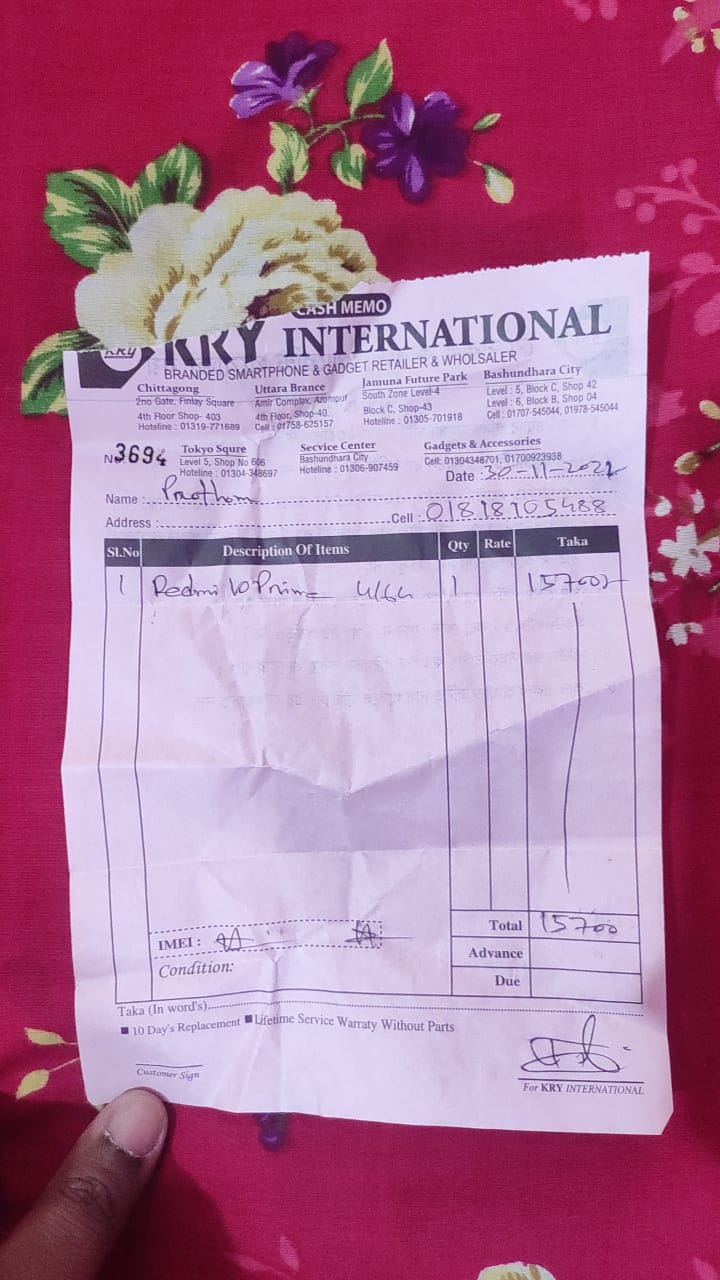 CASH MEMO
KRY
KRY INTERNATIONAL
BRANDED SMARTPHONE & GADGET RETAILER & WHOLSALER
Chittagong
2no Gate, Finlay Square
4th Floor Shop- 403
Hoteline : 01319-771689
Uttara Brance
Amir Complex, Azompur
4th Floor, Shop-40.
Cell : 01758-625157
Jamuna Future Park
South Zone Level-4
Block C, Shop-43
Hoteline : 01305-701918
Bashundhara City
Level : 5, Block C, Shop 42
Level : 6, Block B, Shop 04
Cell : 01707-545044, 01978-545044
No. 3694
Tokyo Squre
Level 5, Shop No 606
Hoteline : 01304-348697
Secvice Center
Bashundhara City
Hoteline : 01306-907459
Gadgets & Accessories
Cell: 01304348701, 01700923938
Date : 30-11-2022
Name : Praothom
Address : Cell : 01818105488
Sl.No Description Of Items Qty Rate Taka
1 Redmi 10 Prime 4/64 1 15700/-
Total 15700
IMEI :
Advance
Condition:
Due
Taka (In word's)
■ 10 Day's Replacement ■ Lifetime Service Warraty Without Parts
Customer Sign
For KRY INTERNATIONAL